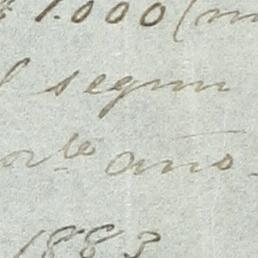 1.000 (m
segun
año.
1883